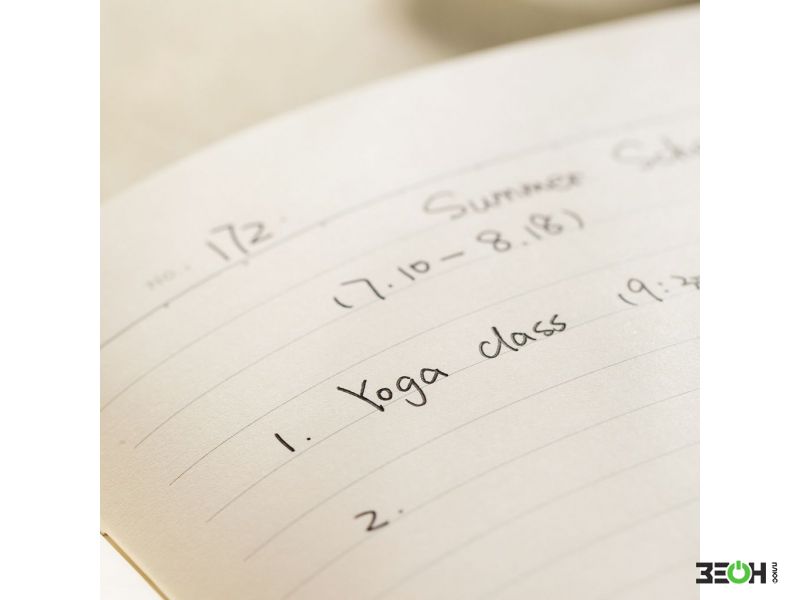 no. 172
Summer
(7.10 - 8.18)
1. Yoga class
2.
ЗЕОН